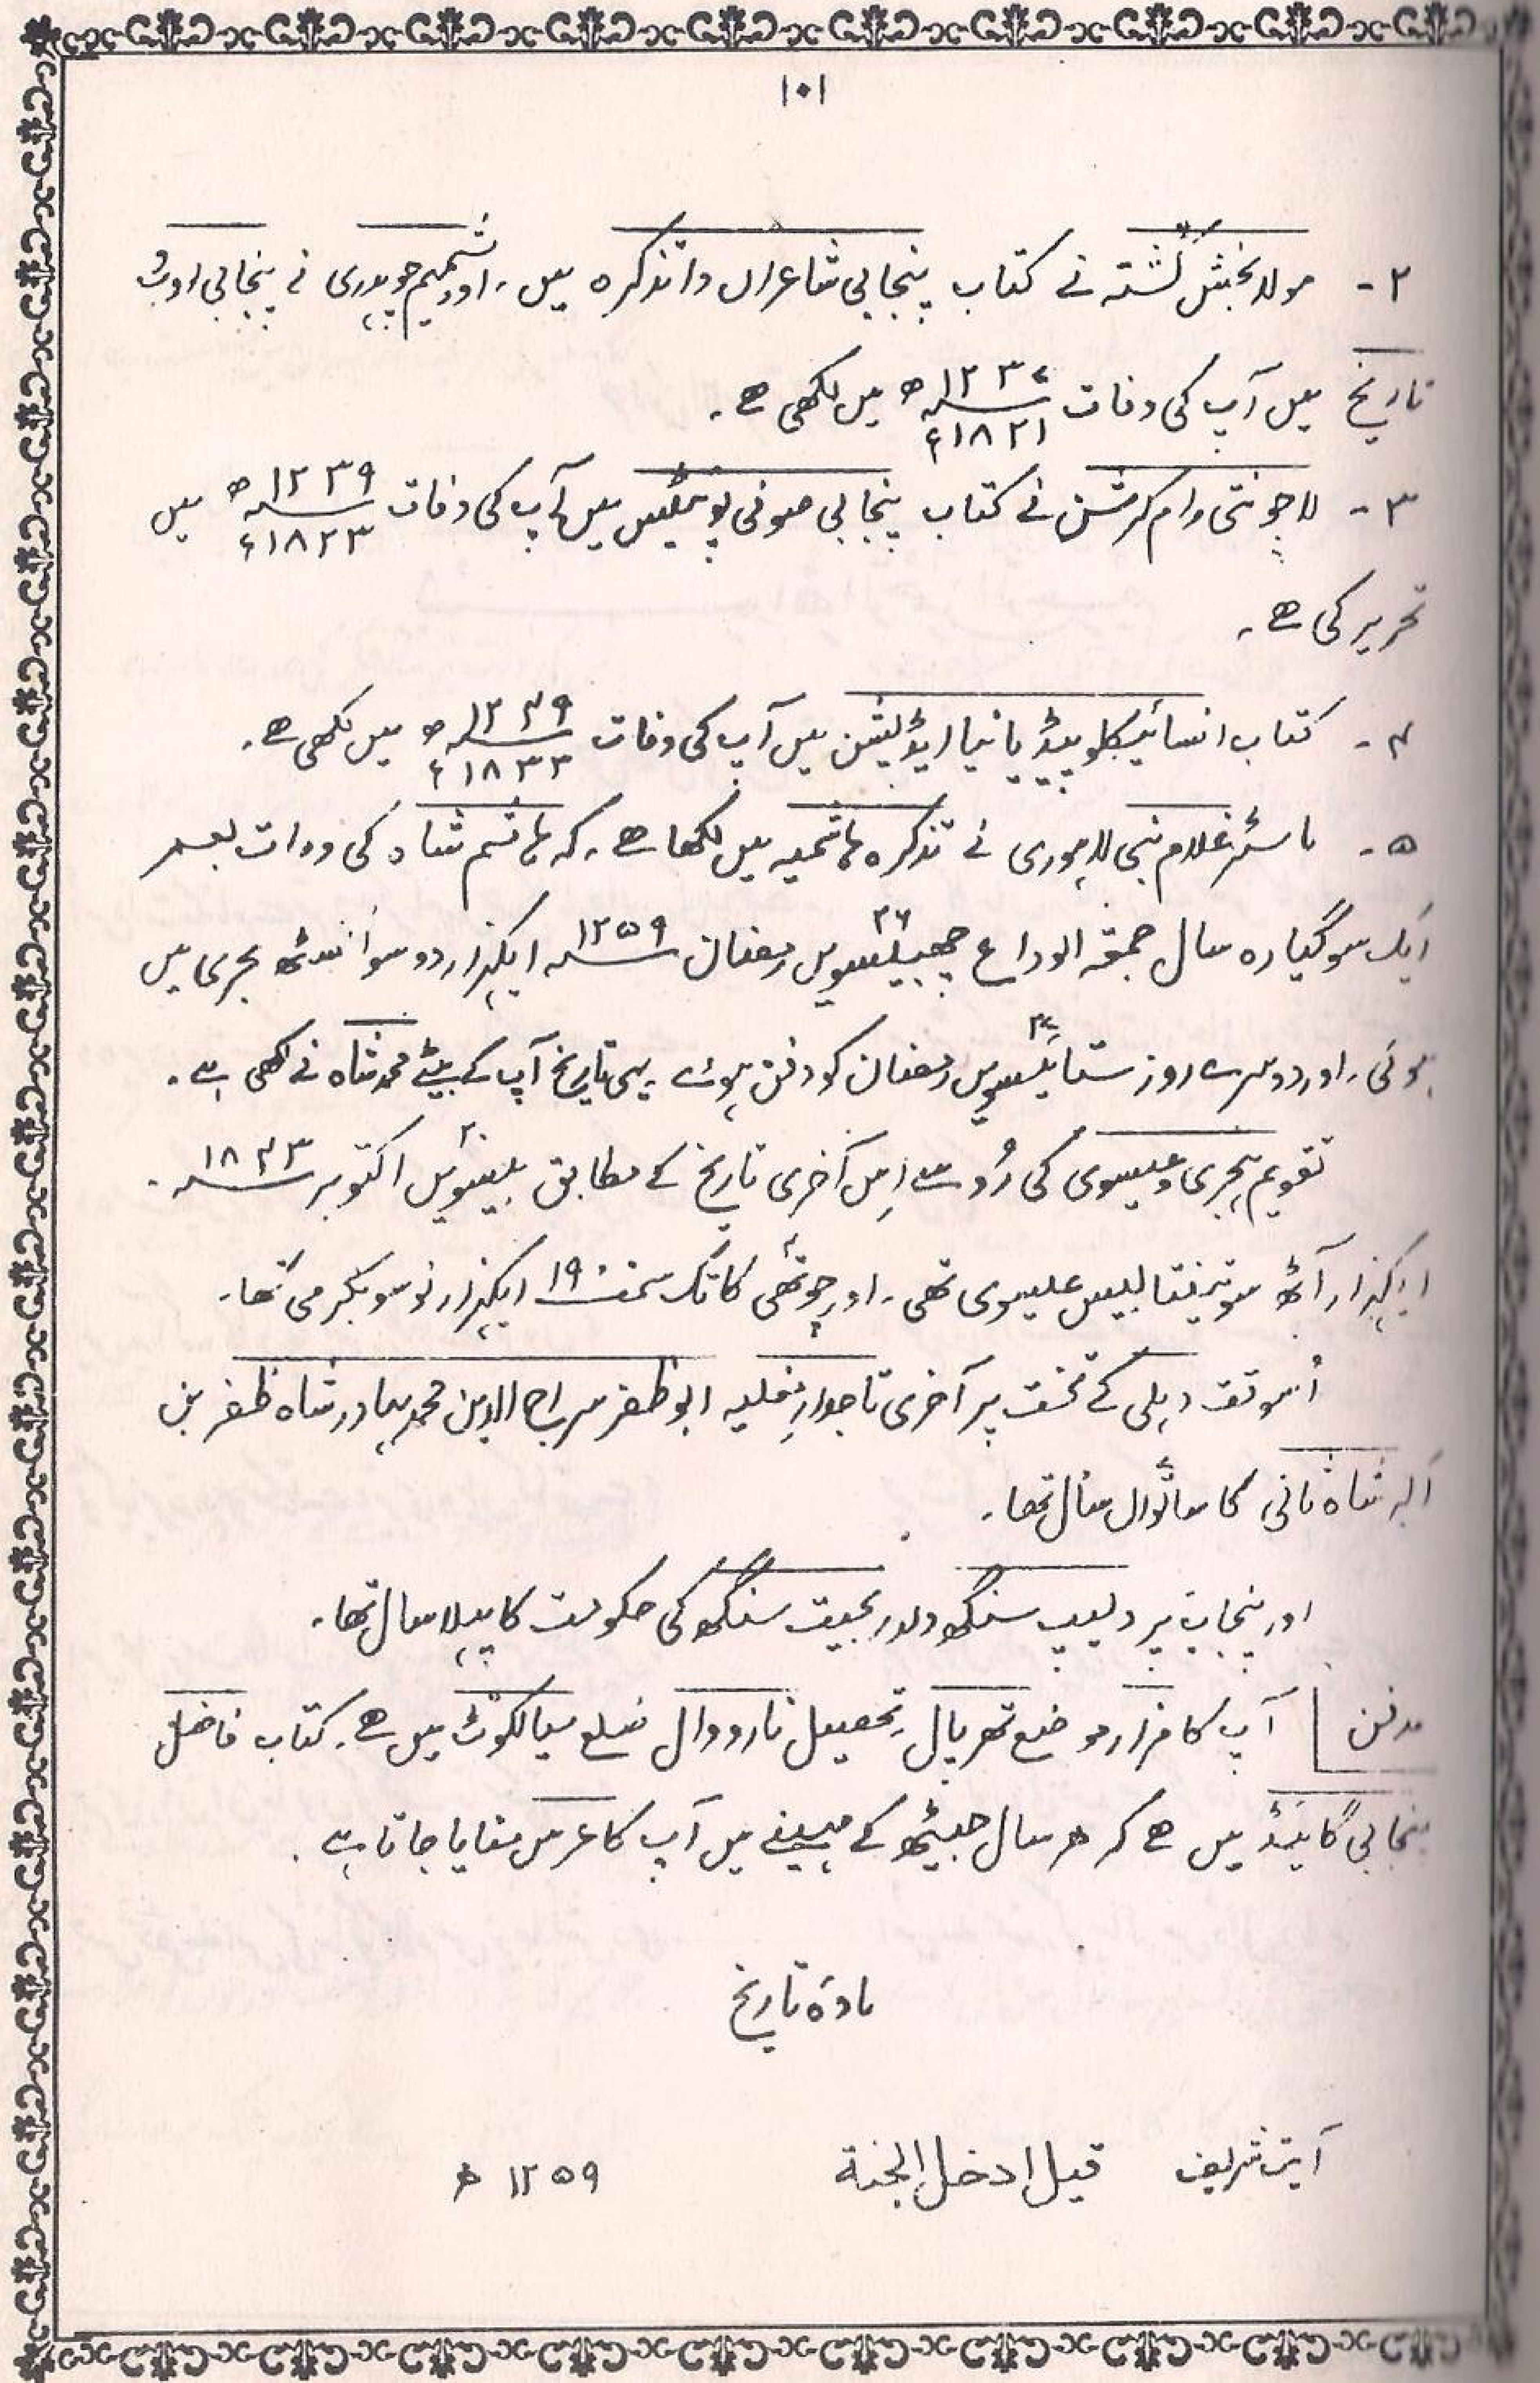 ۱۰۱
۲- مولا بخش کُشتہ نے کتاب پنجابی شاعراں دا تذکرہ میں، اور شمیم چوہدری نے پنجابی ادب
تاریخ میں آپ کی وفات ۱۲۳۷ھ ۱۸۲۱ء میں لکھی ھے۔
۳- لاجونتی رام کرشن نے کتاب پنجابی صوفی پوئیٹس میں آپ کی وفات ۱۲۳۹ھ ۱۸۲۳ء میں
تحریر کی ھے۔
۴- کتاب انسائیکلوپیڈیا نیا ایڈیشن میں آپ کی وفات ۱۲۴۹ھ ۱۸۳۳ء میں لکھی ھے۔
۵- ماسٹر غلام نبی لاہوری نے تذکرہ ہاشمیہ میں لکھا ھے۔ کہ ہاشم شاہ کی وفات بعمر
ایک سو گیارہ سال جمعۃ الوداع چھبیسویں ۲۶ رمضان ۱۲۵۹ھ ایکہزار دو سو انسٹھ ہجری میں
ہوئی، اور دوسرے روز ستائیسویں ۲۷ رمضان کو دفن ہوئے۔ یہی تاریخ آپ کے بیٹے محمد شاہ نے لکھی ہے۔
تقویم ہجری و عیسوی کی رُو سے اِس آخری تاریخ کے مطابق بیسویں ۲۰ اکتوبر ۱۸۴۳
ایکہزار آٹھ سو تینتالیس عیسوی تھی۔ اور چوتھی ۴ کاتک سمت ۱۹۰۰ ایکہزار نو سو بکرمی تھا۔
اُسوقت دہلی کے تخت پر آخری تاجدارِ مغلیہ ابوظفر سراج الدین محمد بہادر شاہ ظفر بن
اکبر شاہ ثانی کا ساتواں ۷ سال تھا۔
اور پنجاب پر دلیپ سنگھ ولد رنجیت سنگھ کی حکومت کا پہلا سال تھا۔
مدفن آپ کا مزار موضع تھرپال، تحصیل نارووال ضلع سیالکوٹ میں ھے۔ کتاب فاضل
پنجابی گائیڈ میں ھے کہ ھر سال جیٹھ کے مہینے میں آپ کا عرس منایا جاتا ہے۔
مادۂ تاریخ
آیت شریف قیل ادخل الجنۃ ۱۲۵۹ھ